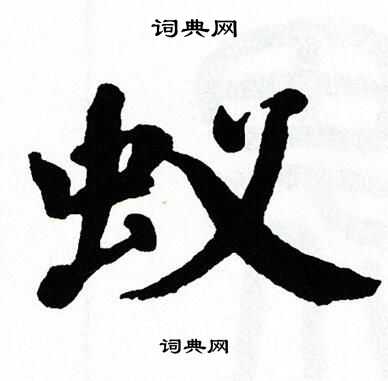 词典网
蚁
词典网